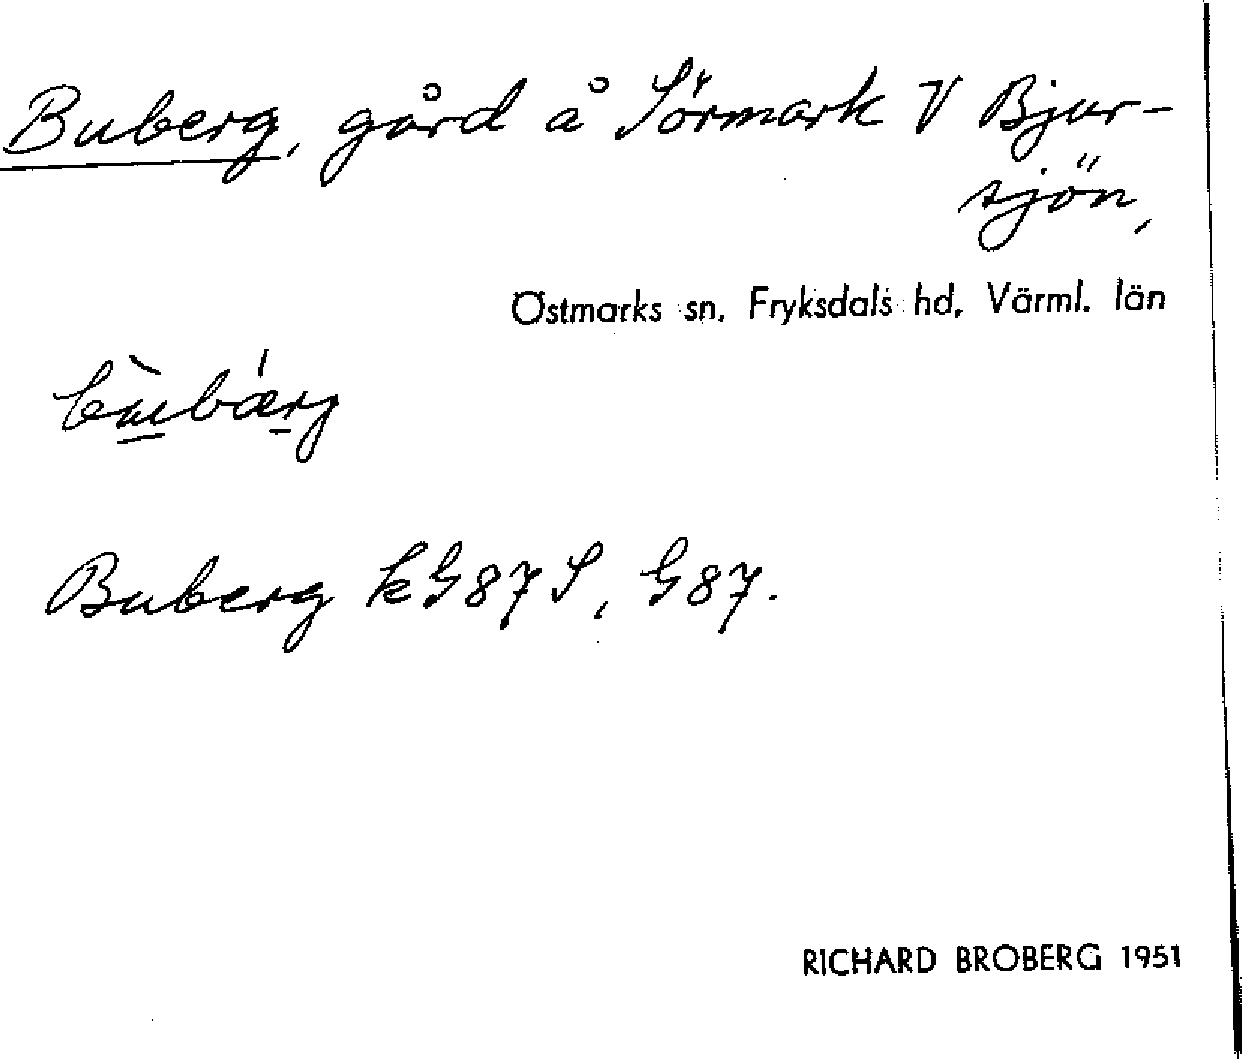 Buberg, gård å Sörmark V Bjur-
sjön,
Östmarks sn. Fryksdals hd, Värml. län
Buberg k G87 S, G87.
RICHARD BROBERG 1951